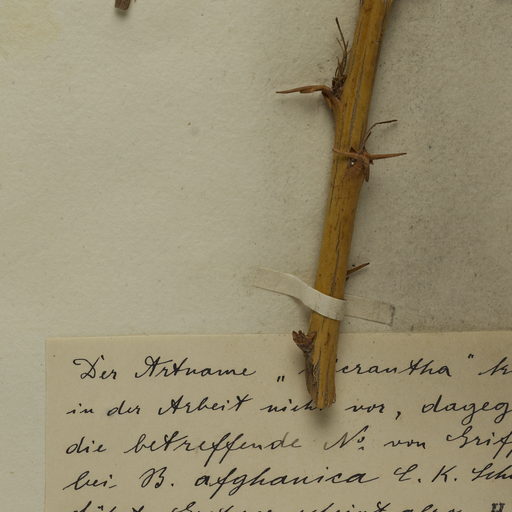 Der Artname „micrantha" k
in der Arbeit nicht vor, dageg
die betreffende No. von Griff
bei B. afghanica C. K. Sch